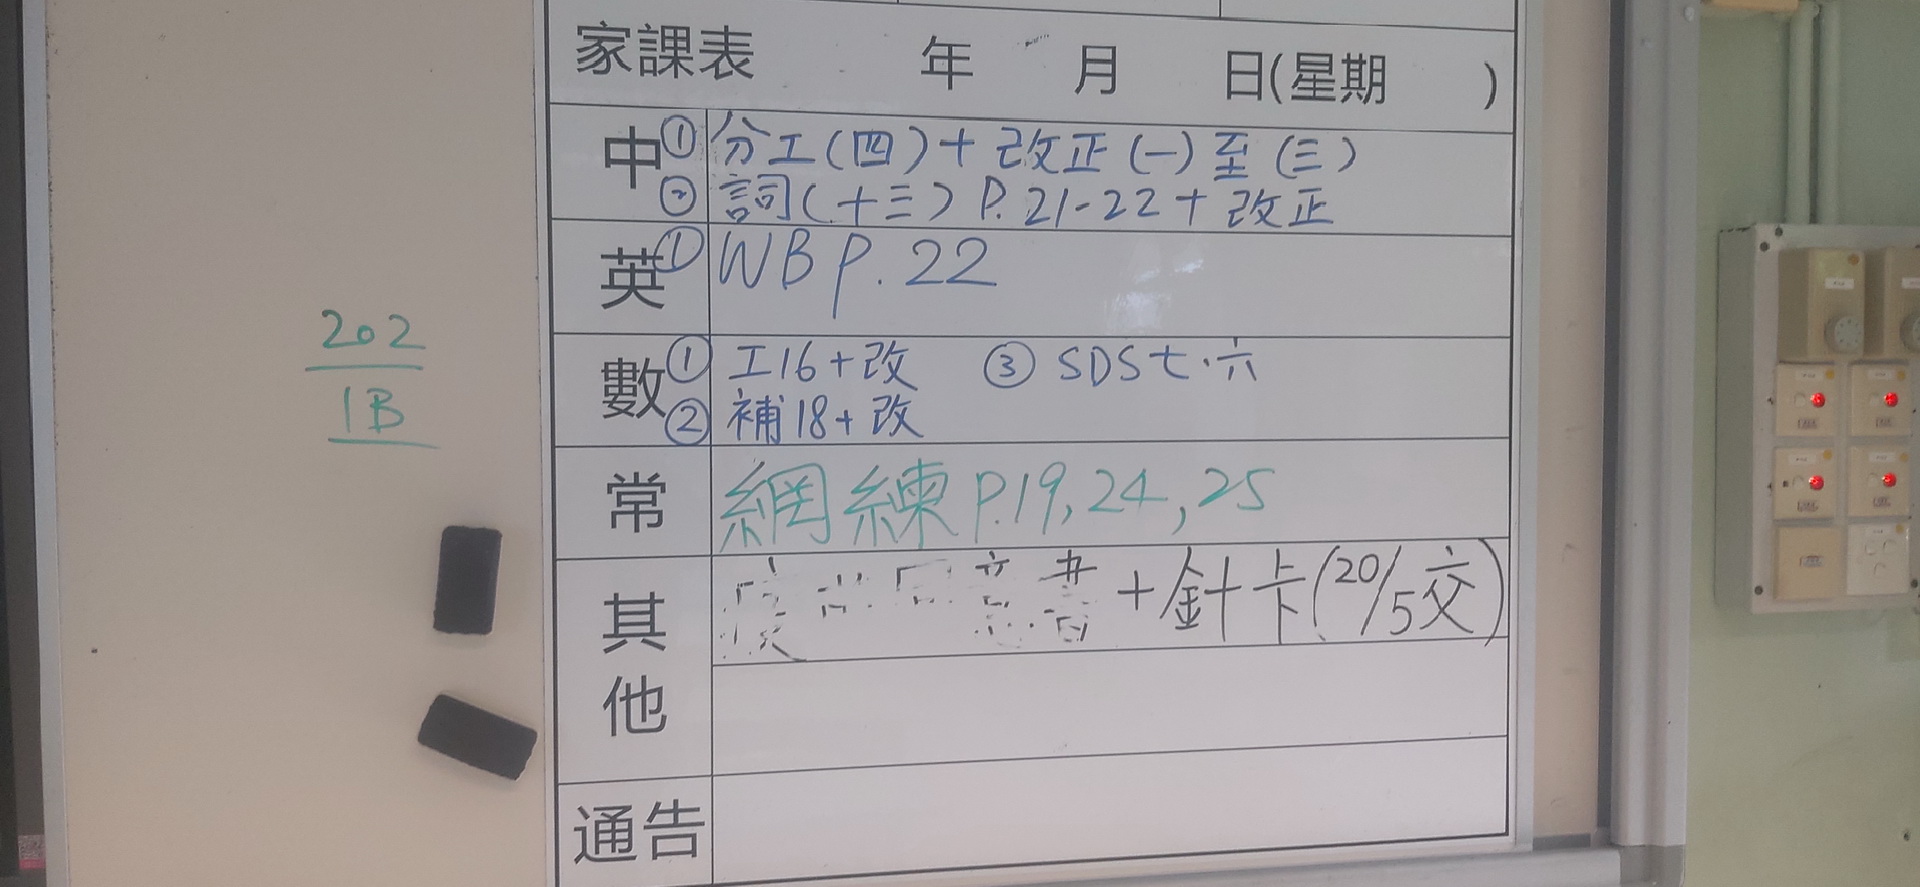 家課表 年 月 日(星期 )
中 ① 分工(四)+改正(一)至(三)
② 詞(十三)P.21-22+改正
英 ① WB P.22
數 ① 工16+改 ③ SDS七.六
② 補18+改
常 網練P.19,24,25
其他 意書+針卡(20/5交)
通告
202
1B